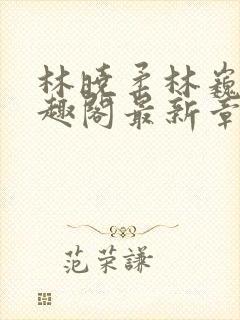 林晓柔林巍
趣阁最新章
范荣谦